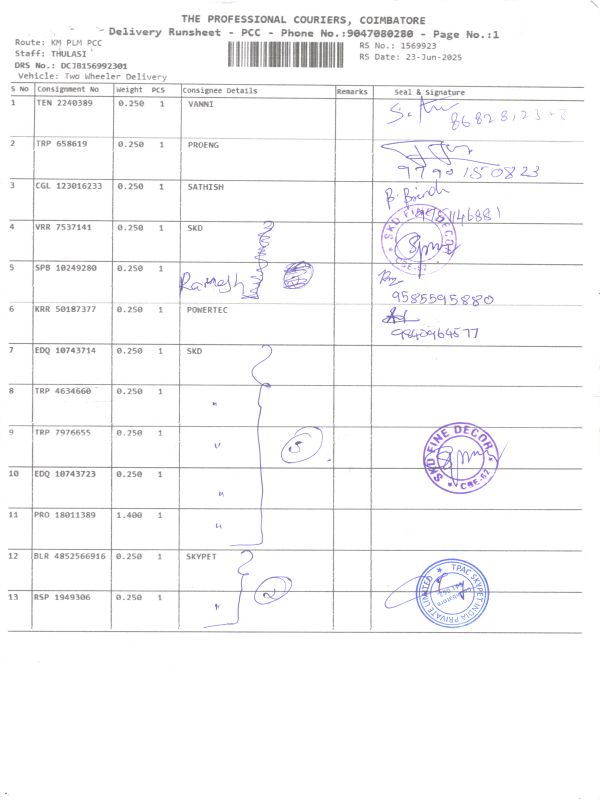 THE PROFESSIONAL COURIERS, COIMBATORE
Delivery Runsheet - PCC - Phone No.:9047080280 - Page No.:1
Route: KM PLM PCC
RS No.: 1569923
Staff: THULASI
RS Date: 23-Jun-2025
DRS No.: DCJB156992301
Vehicle: Two Wheeler Delivery
S No Consignment No Weight PCS Consignee Details Remarks Seal & Signature
1 TEN 2240389 0.250 1 VANNI
2 TRP 658619 0.250 1 PROENG
9790150823
3 CGL 123016233 0.250 1 SATHISH
4 VRR 7537141 0.250 1 SKD
SKD FINE DECOR
CBE-62
5 SPB 10249280 0.250 1 Ramesh
9585595880
6 KRR 50187377 0.250 1 POWERTEC
9840964577
7 EDQ 10743714 0.250 1 SKD
8 TRP 4634660 0.250 1 "
9 TRP 7976655 0.250 1 " 5
SKD FINE DECOR
CBE-62
10 EDQ 10743723 0.250 1 "
11 PRO 18011389 1.400 1 "
12 BLR 4852566916 0.250 1 SKYPET
2
TPAC SKYPET INDIA PRIVATE LIMITED
13 RSP 1949306 0.250 1 "